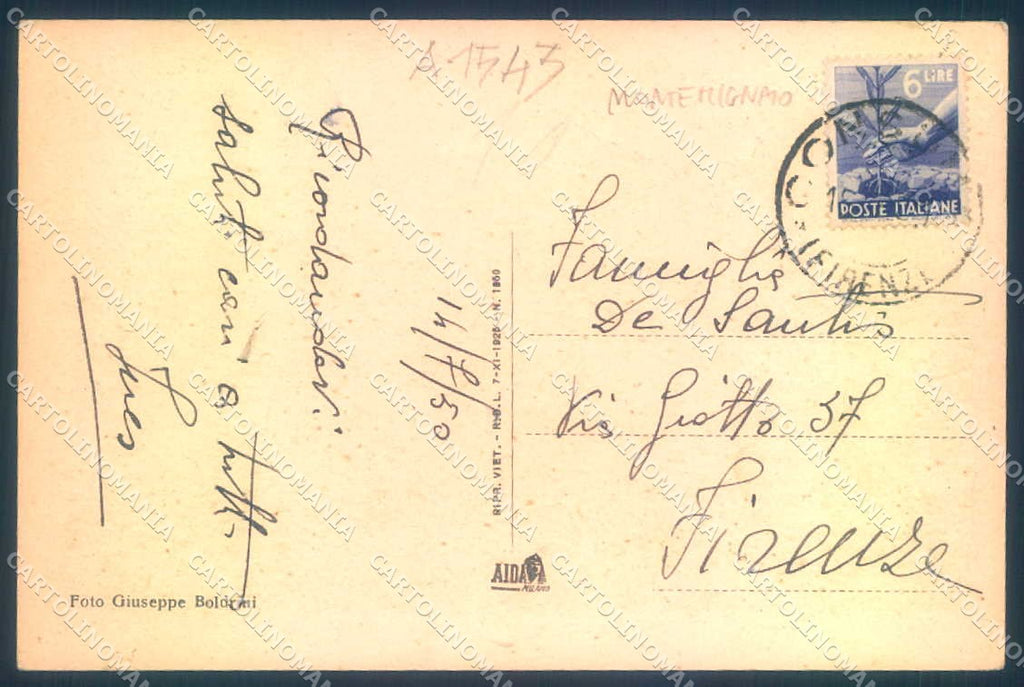 A 1543
MONTEMIGNAIO
6 LIRE
POSTE ITALIANE
(FIRENZE)
Ricordandovi.
saluti cari a tutti
Ines
14/7/50
Famiglia
De Santis
Via Giotto 37
Firenze
RIPR. VIET. - R.D.L. 7-XI-1925 - N. 1950
AIDA
MILANO
Foto Giuseppe Boldrini
CARTOLINOMANIA